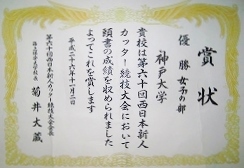 賞状
優勝 女子の部
神戸大学
貴校は第六十回西日本新人
カッター競技大会において
頭書の成績を収められました
よってこれを賞します
平成二十六年十一月二日
第六十回西日本新人カッター競技大会会長
海上保安大学校長
菊井大蔵